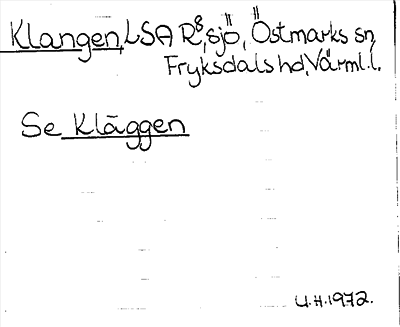 Klangen, LSA R8, sjö, Östmarks sn,
Fryksdals hd, Värml. l.
Se Kläggen
U.H. 1972.